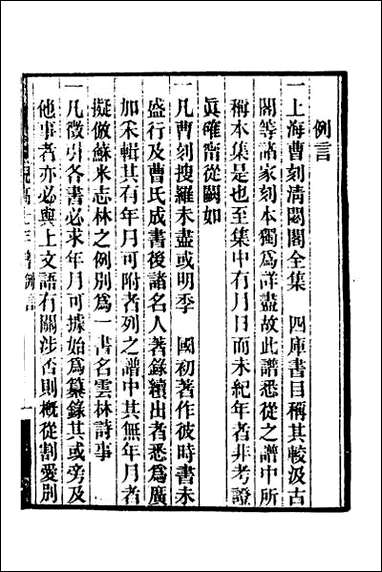 例言
一上海曹刻清閟閣全集　四庫書目稱其較汲古
閣等諸家刻本獨爲詳盡故此譜悉從之譜中所
稱本集是也至集中有月日而未紀年者非考證
眞確甯從闕如
一凡曹刻搜羅未盡或明季　國初著作彼時書未
盛行及曹氏成書後諸名人著錄續出者悉爲廣
加采輯其有年月可附者列之譜中其無年月者
擬倣蘇米志林之例別爲一書名雲林詩事
一凡徵引各書必求年月可據始爲纂錄其或旁及
他事者亦必與上文語有關涉否則概從割愛別